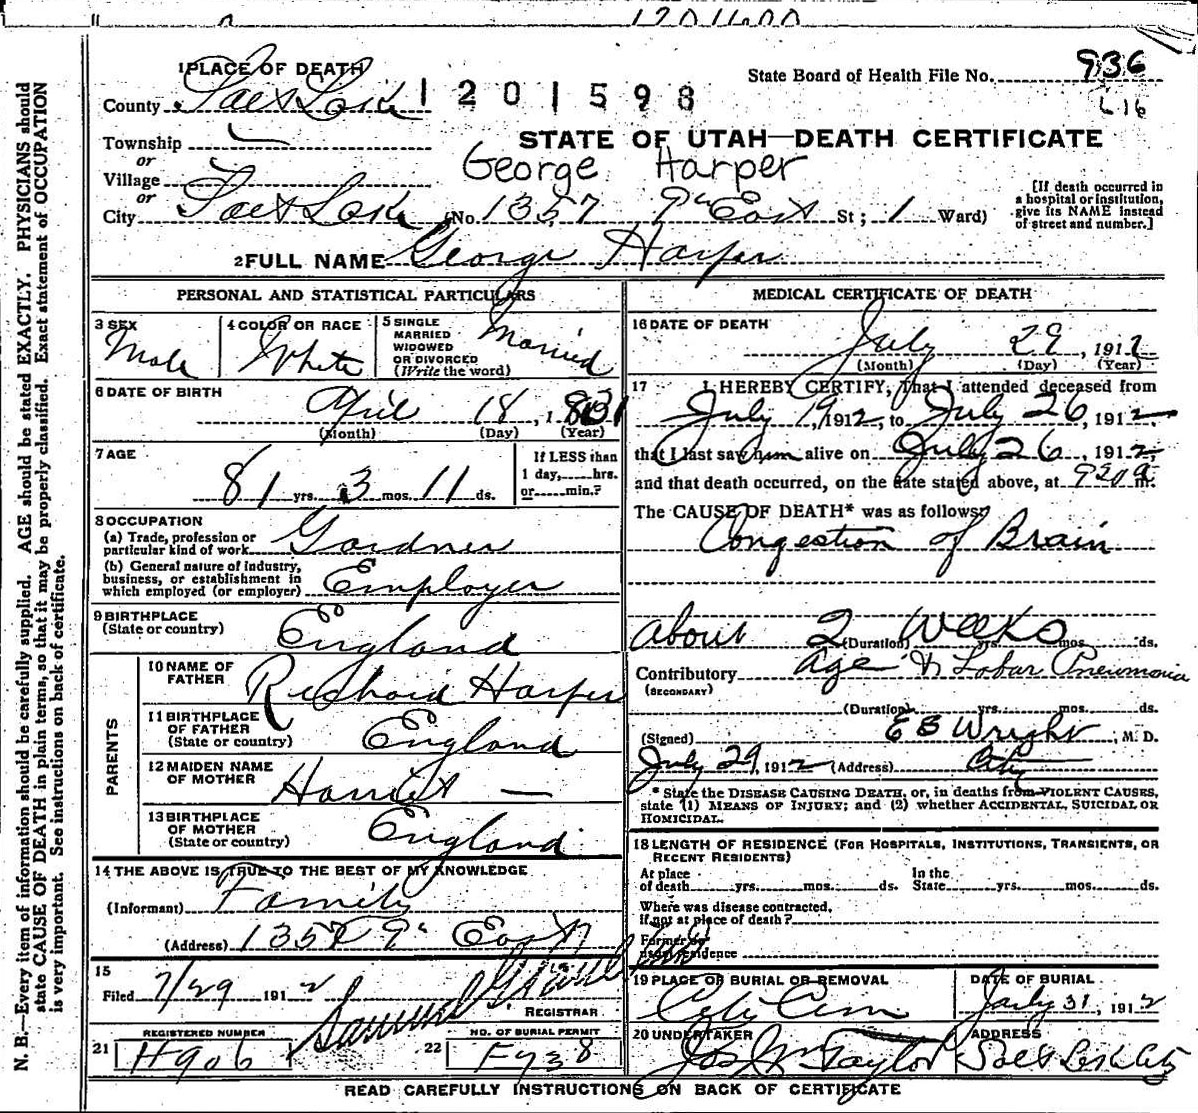 1 PLACE OF DEATH
State Board of Health File No. 936
County Salt Lake 1201598
L16
Township
STATE OF UTAH—DEATH CERTIFICATE
or
Village
George Harper
or
City Salt Lake (No. 1357 9th East St; 1 Ward)
[If death occurred in a hospital or institution, give its NAME instead of street and number.]
2 FULL NAME George Harper
PERSONAL AND STATISTICAL PARTICULARS
3 SEX
Male
4 COLOR OR RACE
White
5 SINGLE MARRIED WIDOWED OR DIVORCED (Write the word)
Married
6 DATE OF BIRTH
April 18, 1831
(Month) (Day) (Year)
7 AGE
81 yrs. 3 mos. 11 ds.
If LESS than 1 day,.....hrs. or.....min.?
8 OCCUPATION
(a) Trade, profession or particular kind of work Gardner
(b) General nature of industry, business, or establishment in which employed (or employer) Employer
9 BIRTHPLACE
(State or country) England
PARENTS
10 NAME OF FATHER Richard Harper
11 BIRTHPLACE OF FATHER (State or country) England
12 MAIDEN NAME OF MOTHER Harriet —
13 BIRTHPLACE OF MOTHER (State or country) England
14 THE ABOVE IS TRUE TO THE BEST OF MY KNOWLEDGE
(Informant) Family
(Address) 1357 9th East
15
Filed 7/29 1912 Samuel G.
REGISTRAR
REGISTERED NUMBER
21 H906
NO. OF BURIAL PERMIT
22 F938
MEDICAL CERTIFICATE OF DEATH
16 DATE OF DEATH
July 29, 1912
(Month) (Day) (Year)
17 I HEREBY CERTIFY, That I attended deceased from
July 19, 1912, to July 26, 1912,
that I last saw him alive on July 26, 1912,
and that death occurred, on the date stated above, at 920 a m.
The CAUSE OF DEATH* was as follows:
Congestion of Brain
About 2 Weeks
(Duration) yrs. mos. ds.
Contributory Age & Lobar Pneumonia
(SECONDARY)
(Duration) yrs. mos. ds.
(Signed) E B Wright, M. D.
July 29, 1912 (Address) City
* State the DISEASE CAUSING DEATH, or, in deaths from VIOLENT CAUSES,
state (1) MEANS OF INJURY; and (2) whether ACCIDENTAL, SUICIDAL OR
HOMICIDAL.
18 LENGTH OF RESIDENCE (FOR HOSPITALS, INSTITUTIONS, TRANSIENTS, OR
RECENT RESIDENTS)
At place of death yrs. mos. ds. In the State yrs. mos. ds.
Where was disease contracted, if not at place of death?
Former or usual residence
19 PLACE OF BURIAL OR REMOVAL
City Cem
DATE OF BURIAL
July 31, 1912
20 UNDERTAKER
Jos Wm Taylor
ADDRESS
Salt Lake City
READ CAREFULLY INSTRUCTIONS ON BACK OF CERTIFICATE
N. B.—Every item of information should be carefully supplied. AGE should be stated EXACTLY. PHYSICIANS should
state CAUSE OF DEATH in plain terms, so that it may be properly classified. Exact statement of OCCUPATION
is very important. See instructions on back of certificate.